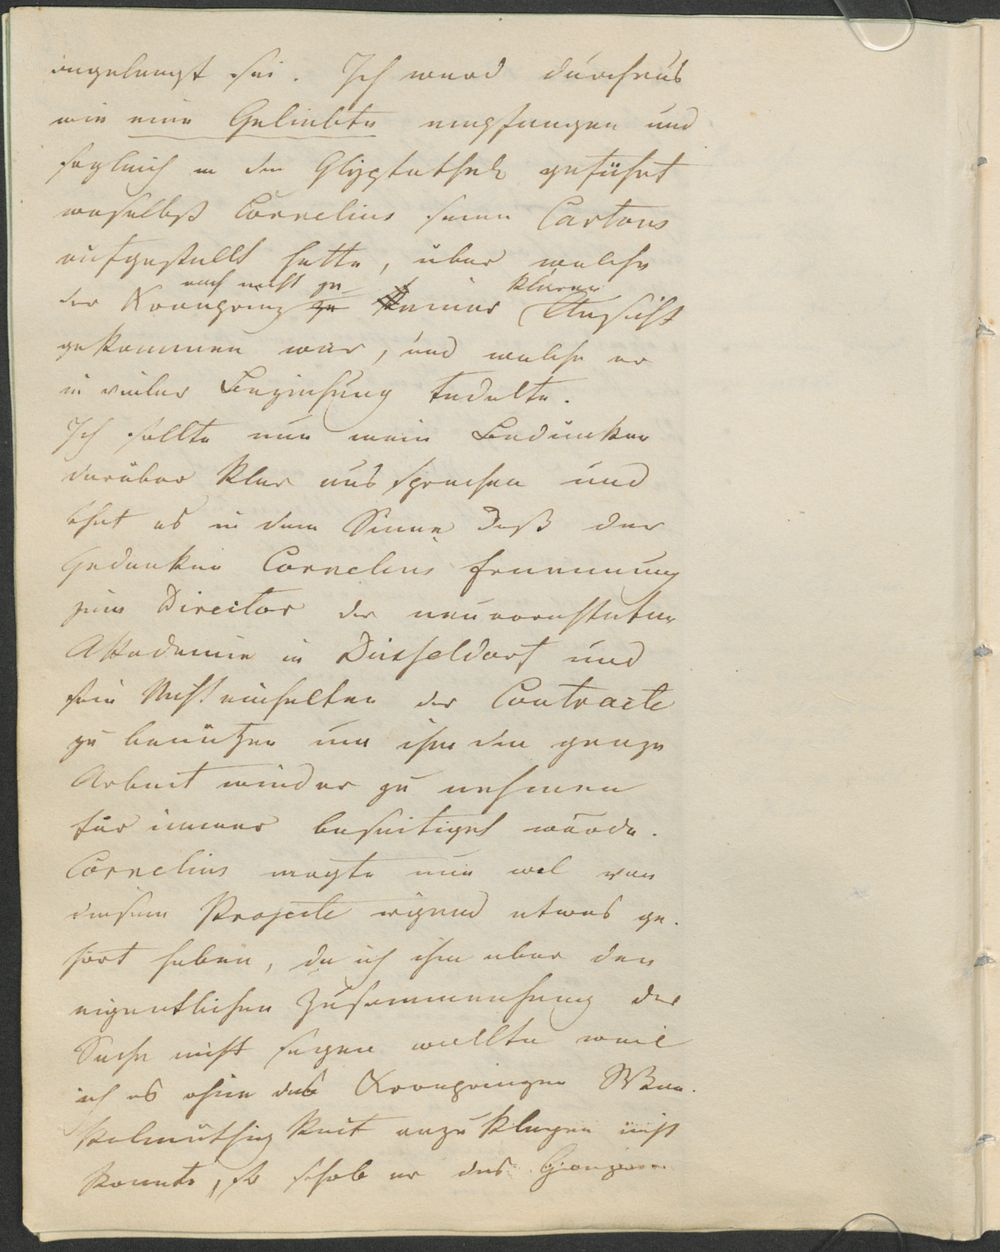 angelangt sei. Ich ward durchaus
wie eine Geliebte empfangen und
sogleich in die Glyptothek geführt
woselbst Cornelius seine Cartons
aufgestellt hatte, über welche
der Kronprinz noch nicht zu keiner klaren Ansicht
gekommen war, und welche er
in vieler Beziehung tadelte.
Ich sollte nun mein Bedünken
darüber klar aussprechen und
that es in dem Sinne daß der
Gedanken Cornelius Ernennung
zum Director der neuerrichteten
Akademie in Düsseldorf und
sein Nichteinhalten der Contracte
zu benützen um ihm die ganze
Arbeit wieder zu nehmen
für immer beseitiget würde.
Cornelius mogte nun wol von
diesem Projecte irgend etwas ge-
hört haben, da ich ihm aber den
eigentlichen Zusammenhang der
Sache nicht sagen wollte weil
ich es ohne des Kronprinzen Wan-
kelmüthigkeit anzuklagen nicht
konnte, so schob er das